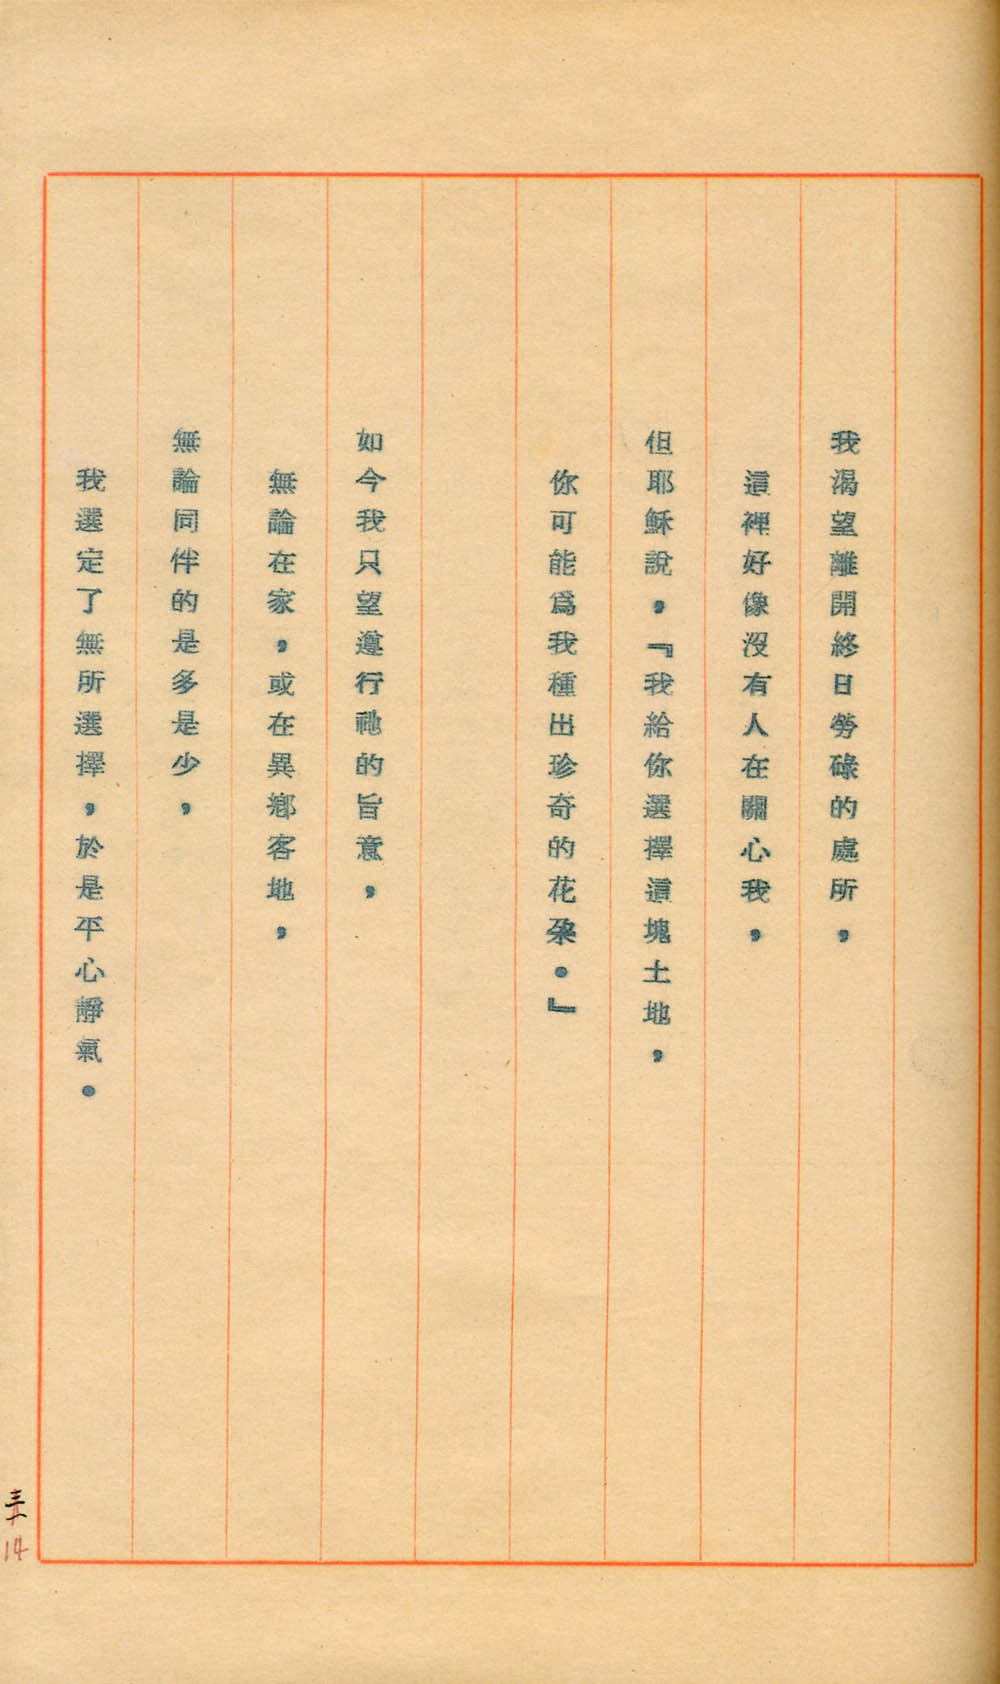 我渴望離開終日勞碌的處所，
這裡好像沒有人在關心我，
但耶穌說，『我給你選擇這塊土地，
你可能爲我種出珍奇的花朶。』
如今我只望遵行祂的旨意，
無論在家，或在異鄉客地，
無論同伴的是多是少，
我選定了無所選擇，於是平心靜氣。
14